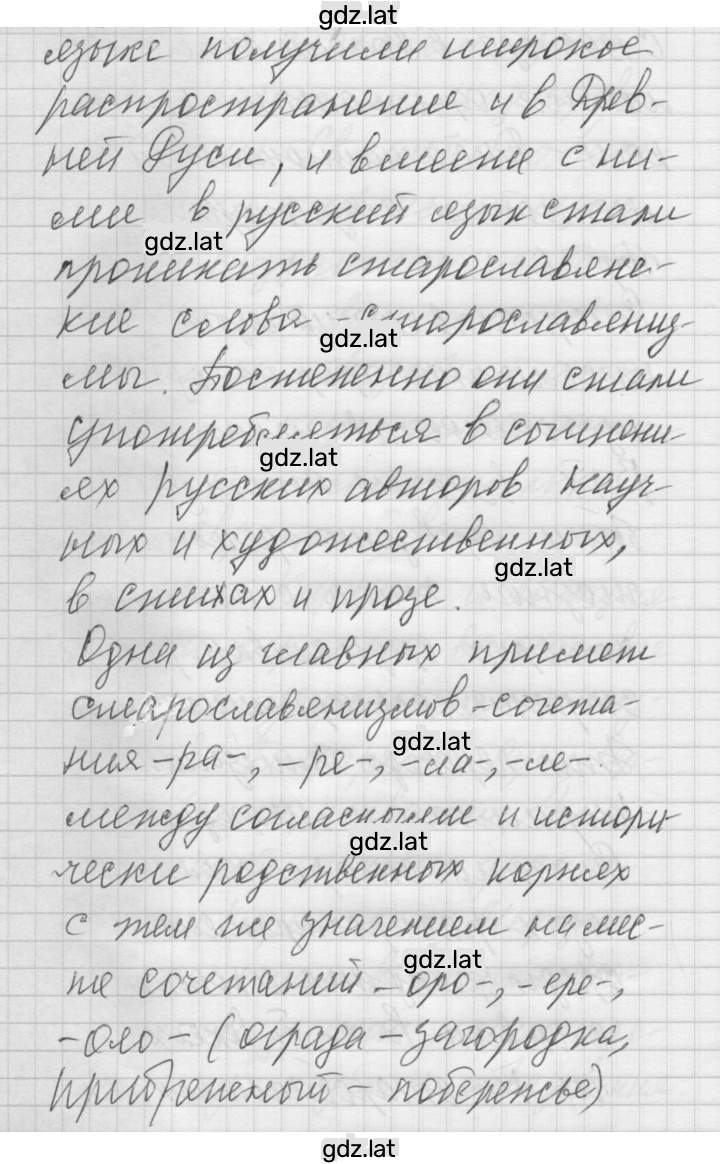 gdz.lat
языке получили широкое
распространение и в Древ-
ней Руси, и вместе с ни-
ми в русский язык стали
gdz.lat
проникать старославянс-
кие слова - старославяниз-
gdz.lat
мы. Постепенно они стали
употребляться в сочинени-
gdz.lat
ях русских авторов науч-
ных и художественных,
gdz.lat
в стихах и прозе.
Одна из главных примет
старославянизмов - сочета-
gdz.lat
ния -ра-, -ре-, -ла-, -ле-
между согласными и истори
gdz.lat
чески родственных корнях
с тем же значением на мес-
gdz.lat
те сочетаний -оро-, -ере-,
-оло- (ограда - загородка,
прибрежный - побережье)
gdz.lat